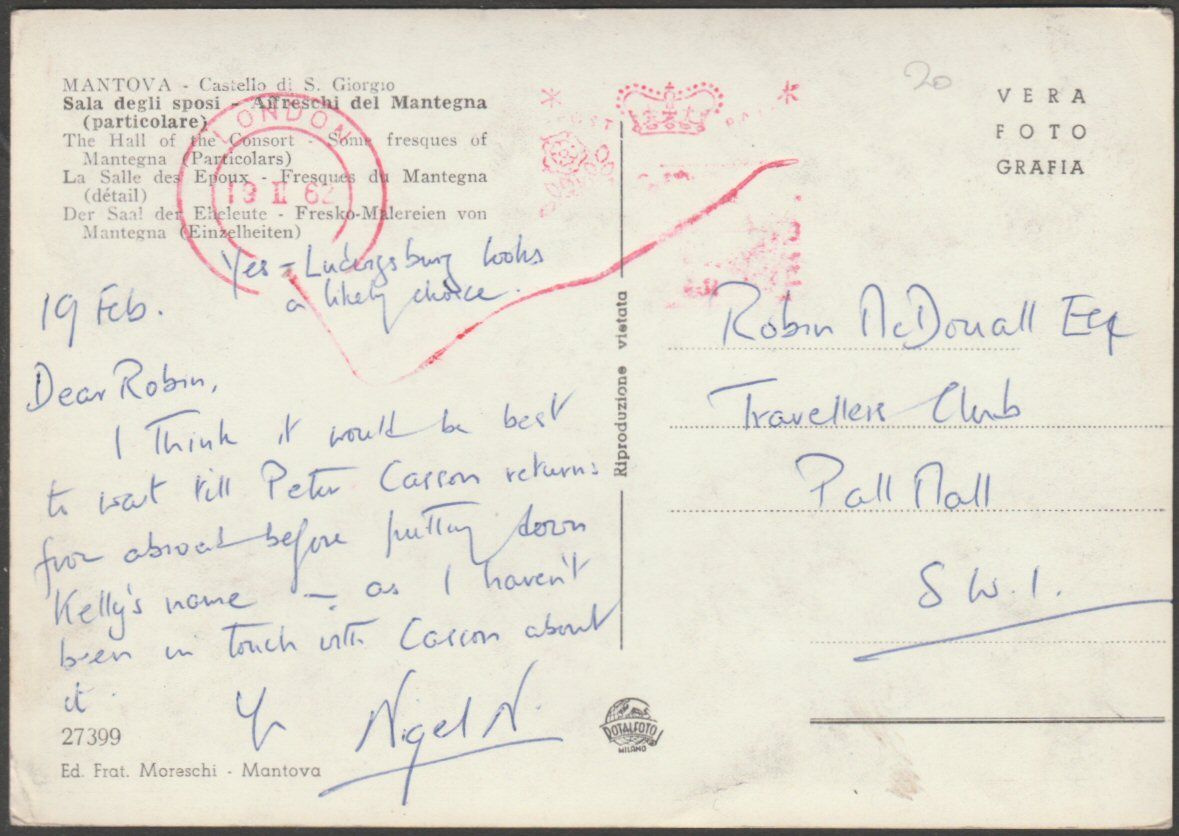 MANTOVA - Castello di S. Giorgio
Sala degli sposi - Affreschi del Mantegna
(particolare)
The Hall of the Consort - Some fresques of
Mantegna (Particolars)
La Salle des Epoux - Fresques du Mantegna
(détail)
Der Saal der Eheleute - Fresko-Malereien von
Mantegna (Einzelheiten)
LONDON
19 II 62
20
VERA
FOTO
GRAFIA
Yes - Ludwigsburg looks
a likely choice.
19 Feb.
Dear Robin,
I think it would be best
to wait till Peter Casson returns
from abroad before putting down
Kelly's name - as I haven't
been in touch with Casson about
it.
Nigel N.
27399
Ed. Frat. Moreschi - Mantova
Riproduzione vietata
ROTALFOTO
MILANO
Robin McDouall Esq
Travellers Club
Pall Mall
S.W.1.